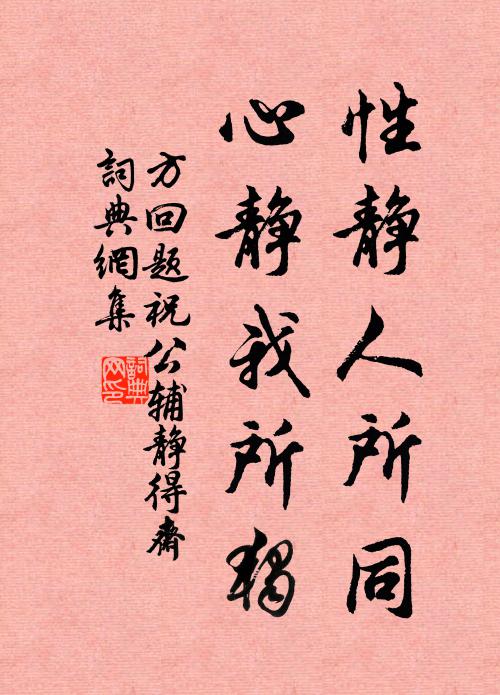 性静人所同
心静我所獨
方回题祝公辅静得齋
詞典網集
詞典网印